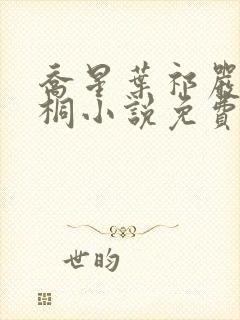 喬星葉祁嚴
桐小說免費
世昀